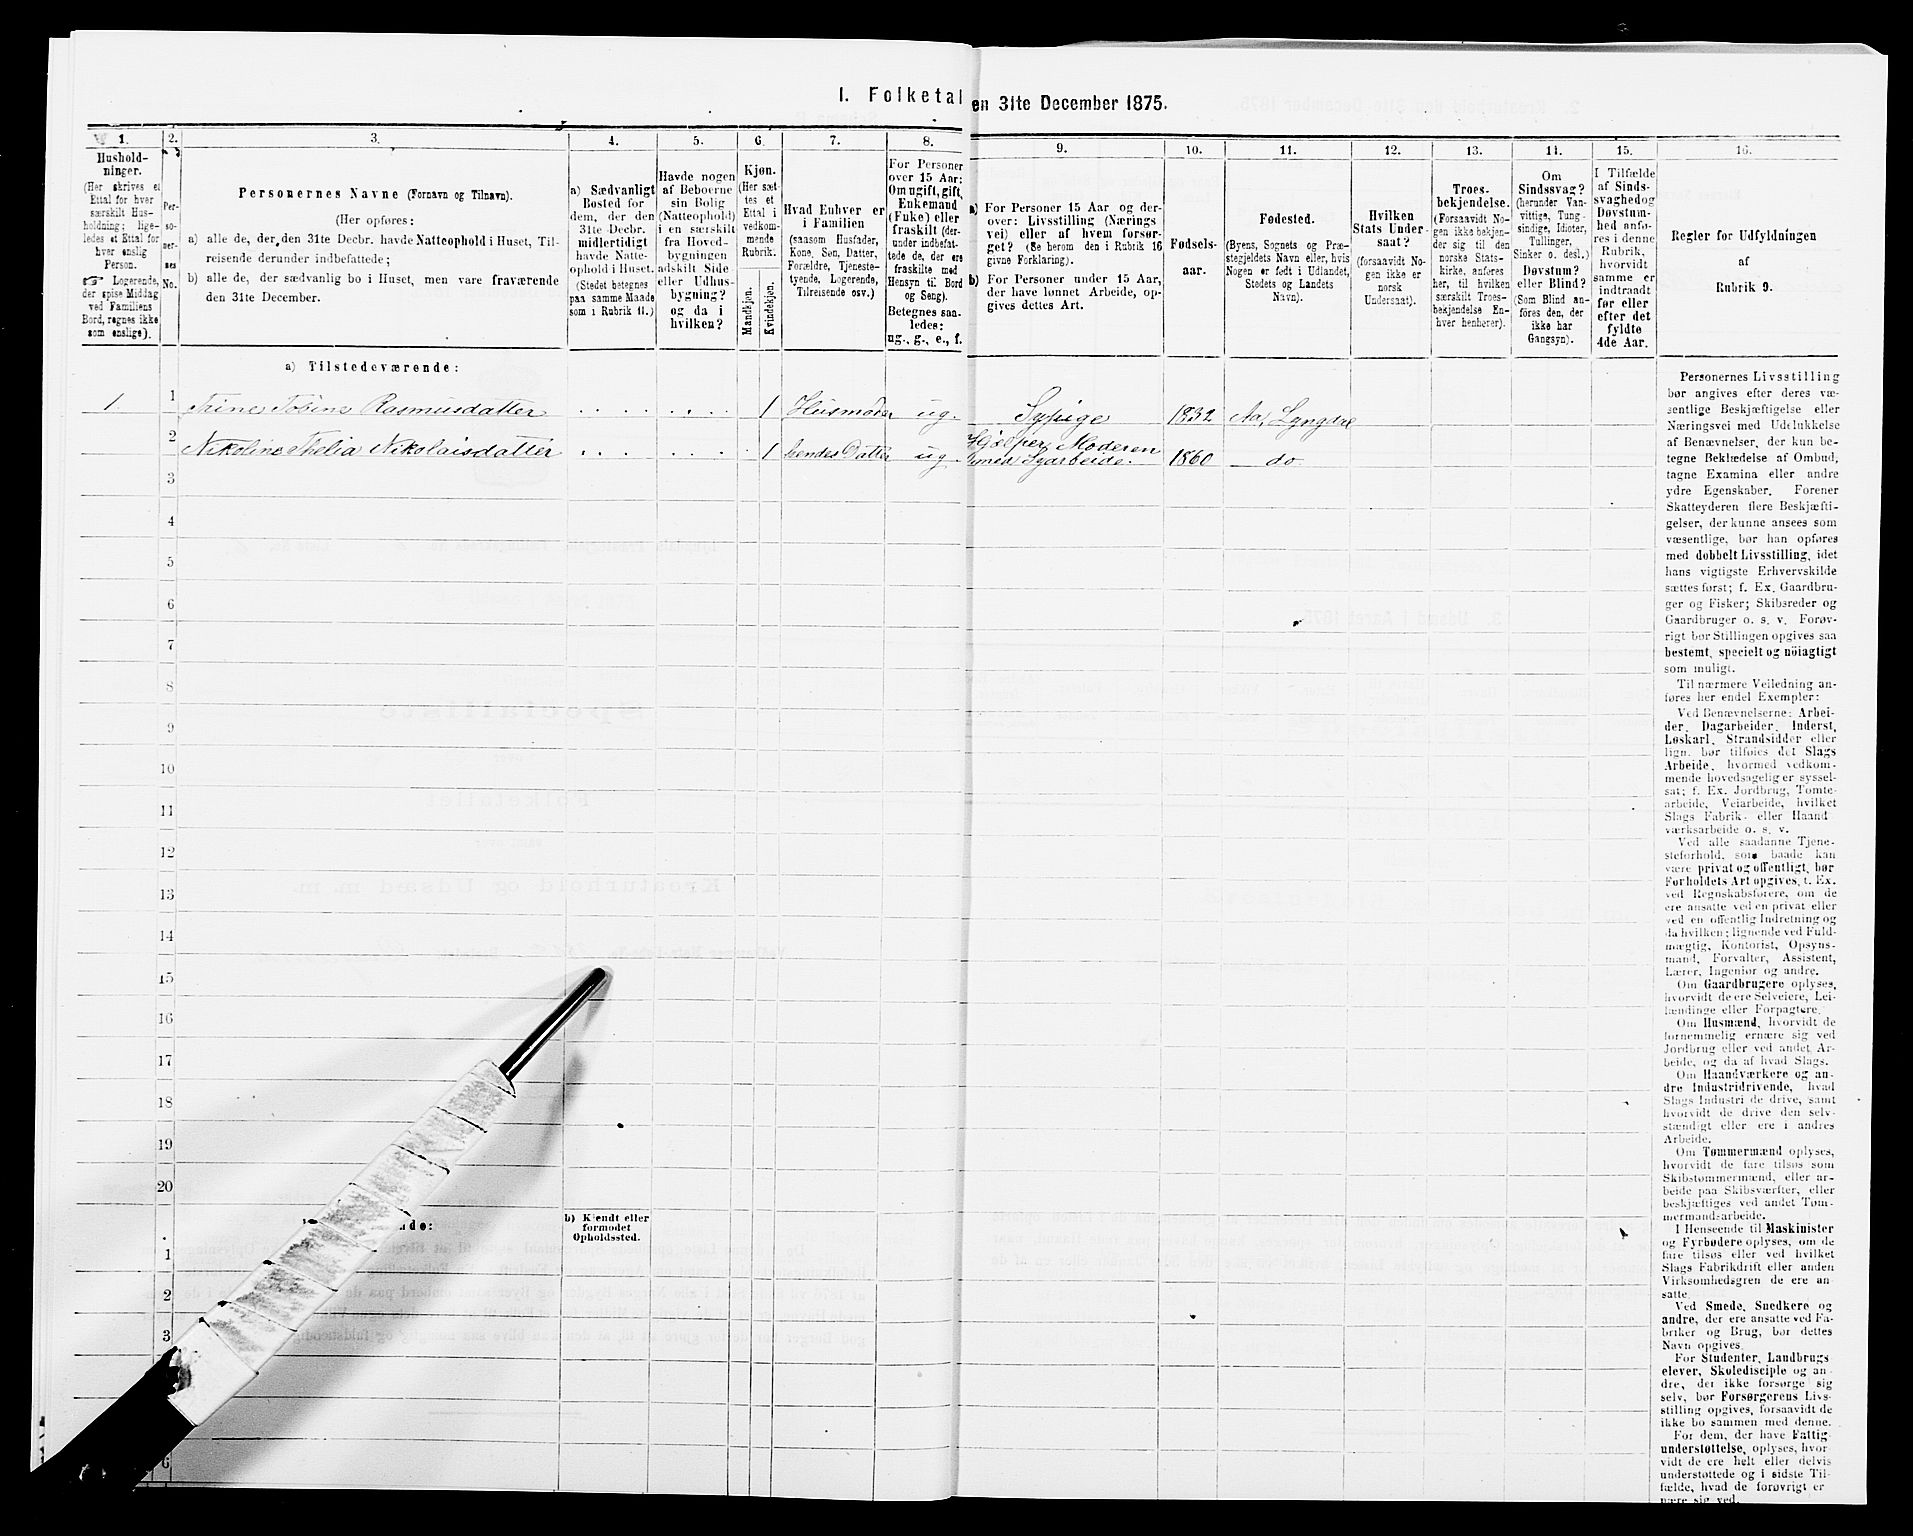 I. Folketal
en 31te December 1875.
1.
2.
3.
4.
5.
6.
7.
8.
9.
10.
11.
12.
13.
14.
15.
16.
Hushold-
ninger.
(Her skrives et
Ettal for hver
særskilt Hus-
holdning; lige-
ledes et Ettal for
hver enslig
Person.
☞ Logerende,
der spise Middag
ved Familiens
Bord, regnes ikke
som enslige).
Per-
so-
ner-
nes
No.
Personernes Navne (Fornavn og Tilnavn).
(Her opføres:
a) alle de, der den 31te Decbr. havde Natteophold i Huset, Til-
reisende derunder indbefattede;
b) alle de, der sædvanlig bo i Huset, men vare fraværende
den 31te December.
a) Sædvanligt
Bosted for
dem, der den
31te Decbr.
midlertidigt
havde Natte-
ophold i Huset.
(Stedet betegnes
paa samme Maade
som i Rubrik 11.)
Havde nogen
af Beboerne
sin Bolig
(Natteophold)
i en særskilt
fra Hoved-
bygningen
adskilt Side-
eller Udhus-
bygning?
og da i
hvilken?
Kjøn.
(Her sæt-
tes et
Ettal i
vedkom-
mende
Rubrik.
Mandkjøn.
Kvindekjøn.
Hvad Enhver er
i Familien
(saasom Husfader,
Kone, Søn, Datter,
Forældre, Tjeneste-
tyende, Logerende,
Tilreisende osv.)
For Personer
over 15 Aar:
Om ugift, gift,
Enkemand
(Fuke) eller
fraskilt (der-
under indbefat-
tede de, der ere
fraskilte med
Hensyn til Bord
og Seng).
Betegnes saa-
ledes:
ug., g., e., f.
a) For Personer 15 Aar og der-
over: Livsstilling (Nærings
vei) eller af hvem forsør-
get? (Se herom den i Rubrik 16
givne Forklaring).
b) For Personer under 15 Aar,
der have lønnet Arbeide, op-
gives dettes Art.
Fødsels-
aar.
Fødested.
(Byens, Sognets og Præ-
stegjeldets Navn eller, hvis
Nogen er født i Udlandet,
Stedets og Landets
Navn).
Hvilken
Stats Under-
saat?
(forsaavidt No-
gen ikke er
norsk
Undersaat).
Troes-
bekjendelse.
(Forsaavidt No-
gen ikke bekjen-
der sig til den
norske Stats-
kirke, anføres
her, til hvilken
særskilt Troes-
bekjendelse En-
hver henhører).
Om
Sindssvag?
(herunder Van-
vittige, Tung-
sindige, Idioter,
Tullinger,
Sinker o. desl.)
Døvstum?
eller Blind?
(Som Blind an-
føres den, der
ikke har
Gangsyn).
I Tilfælde
af Sinds-
svaghed og
Døvstum-
hed anfø-
res i denne
Rubrik,
hvorvidt
samme er
indtraadt
før eller
efter det
fyldte
4de Aar.
Regler for Udfyldningen
af
Rubrik 9.
a) Tilstedeværende:
1. 1 Trine Tobine Rasmusdatter 1 Husmoder ug. Sypige 1832 Aa, Lyngdal
2 Nikoline Thelia Nikolaisdatter 1 hendes Datter ug. Hjælper Moderen
med Syarbeide. 1860 do
3
4
5
6
7
8
9
10
11
12
13
14
15
16
17
18
19
20
nde:
b) Kjendt eller
formodet
Opholdssted.
1
2
3
6
Personernes Livsstilling
bør angives efter deres væ-
sentlige Beskjæftigelse eller
Næringsvei med Udelukkelse
af Benævnelser, der kun be-
tegne Beklædelse af Ombud,
tagne Examina eller andre
ydre Egenskaber. Forener
Skatteyderen flere Beskjæfti-
gelser, der kunne ansees som
væsentlige, bør han opføres
med dobbelt Livsstilling, idet
hans vigtigste Erhvervskilde
sættes først; f. Ex. Gaardbru-
ger og Fisker; Skibsreder og
Gaardbruger o. s. v. Forøv-
rigt bør Stillingen opgives saa
bestemt, specielt og nöiagtigt
som muligt.
Til nærmere Veiledning an-
føres her endel Exempler:
Ved Benævnelserne: Arbei-
der, Dagarbeider, Inderst,
Løskarl, Strandsidder eller
lign. bør tilføies det Slags
Arbeide, hvormed vedkom-
mende hovedsagelig er syssel-
sat; f. Ex. Jordbrug, Tomte-
arbeide, Veiarbeide, hvilket
Slags Fabrik- eller Haand
værksarbeide o. s. v.
Ved alle saadanne Tjene-
steforhold, som baade kan
være privat og offentligt, bør
Forholdets Art opgives, f. Ex.
ved Regnskabsførere, om de
ere ansatte ved en privat eller
ved en offentlig Indretning og
da hvilken; lignende ved Fuld-
mægtig, Kontorist, Opsyns-
mand, Forvalter, Assistent,
Lærer, Ingeniør og andre.
Om Gaardbrugere oplyses,
hvorvidt de ere Selveiere, Lei-
lændinge eller Forpagtere.
Om Husmænd, hvorvidt de
fornemmelig ernære sig ved
Jordbrug eller ved andet Ar-
beide, og da af hvad Slags.
Om Haandværkere og an-
dre Industridrivende, hvad
Slags Industri de drive, samt
hvorvidt de drive den selv-
stændigt eller ere i andres
Arbeide.
Om Tømmermænd oplyses,
hvorvidt de fare tilsøs som
Skibstømmermænd, eller ar-
beide paa Skibsværfter, eller
beskjæftiges ved andet Tøm-
mermandsarbeide.
I Henseende til Maskinister
og Fyrbødere oplyses, om de
fare tilsøs eller ved hvilket
Slags Fabrikdrift eller anden
Virksomhedsgren de ere an-
satte.
Ved Smede, Snedkere og
andre, der ere ansatte ved Fa-
briker og Brug, bør dettes
Navn opgives.
For Studenter, Landbrugs
elever, Skoledisciple og an-
dre, der ikke forsørge sig
selv, bør Forsørgerens Livs-
stilling opgives, forsaavidt de
ikke bo sammen med denne.
For dem, der have Fattig-
understøttelse, oplyses, hvor-
vidt de ere helt eller delvis
understøttede og i sidste Til-
fælde, hvad de forøvrigt er
nære sig ved.